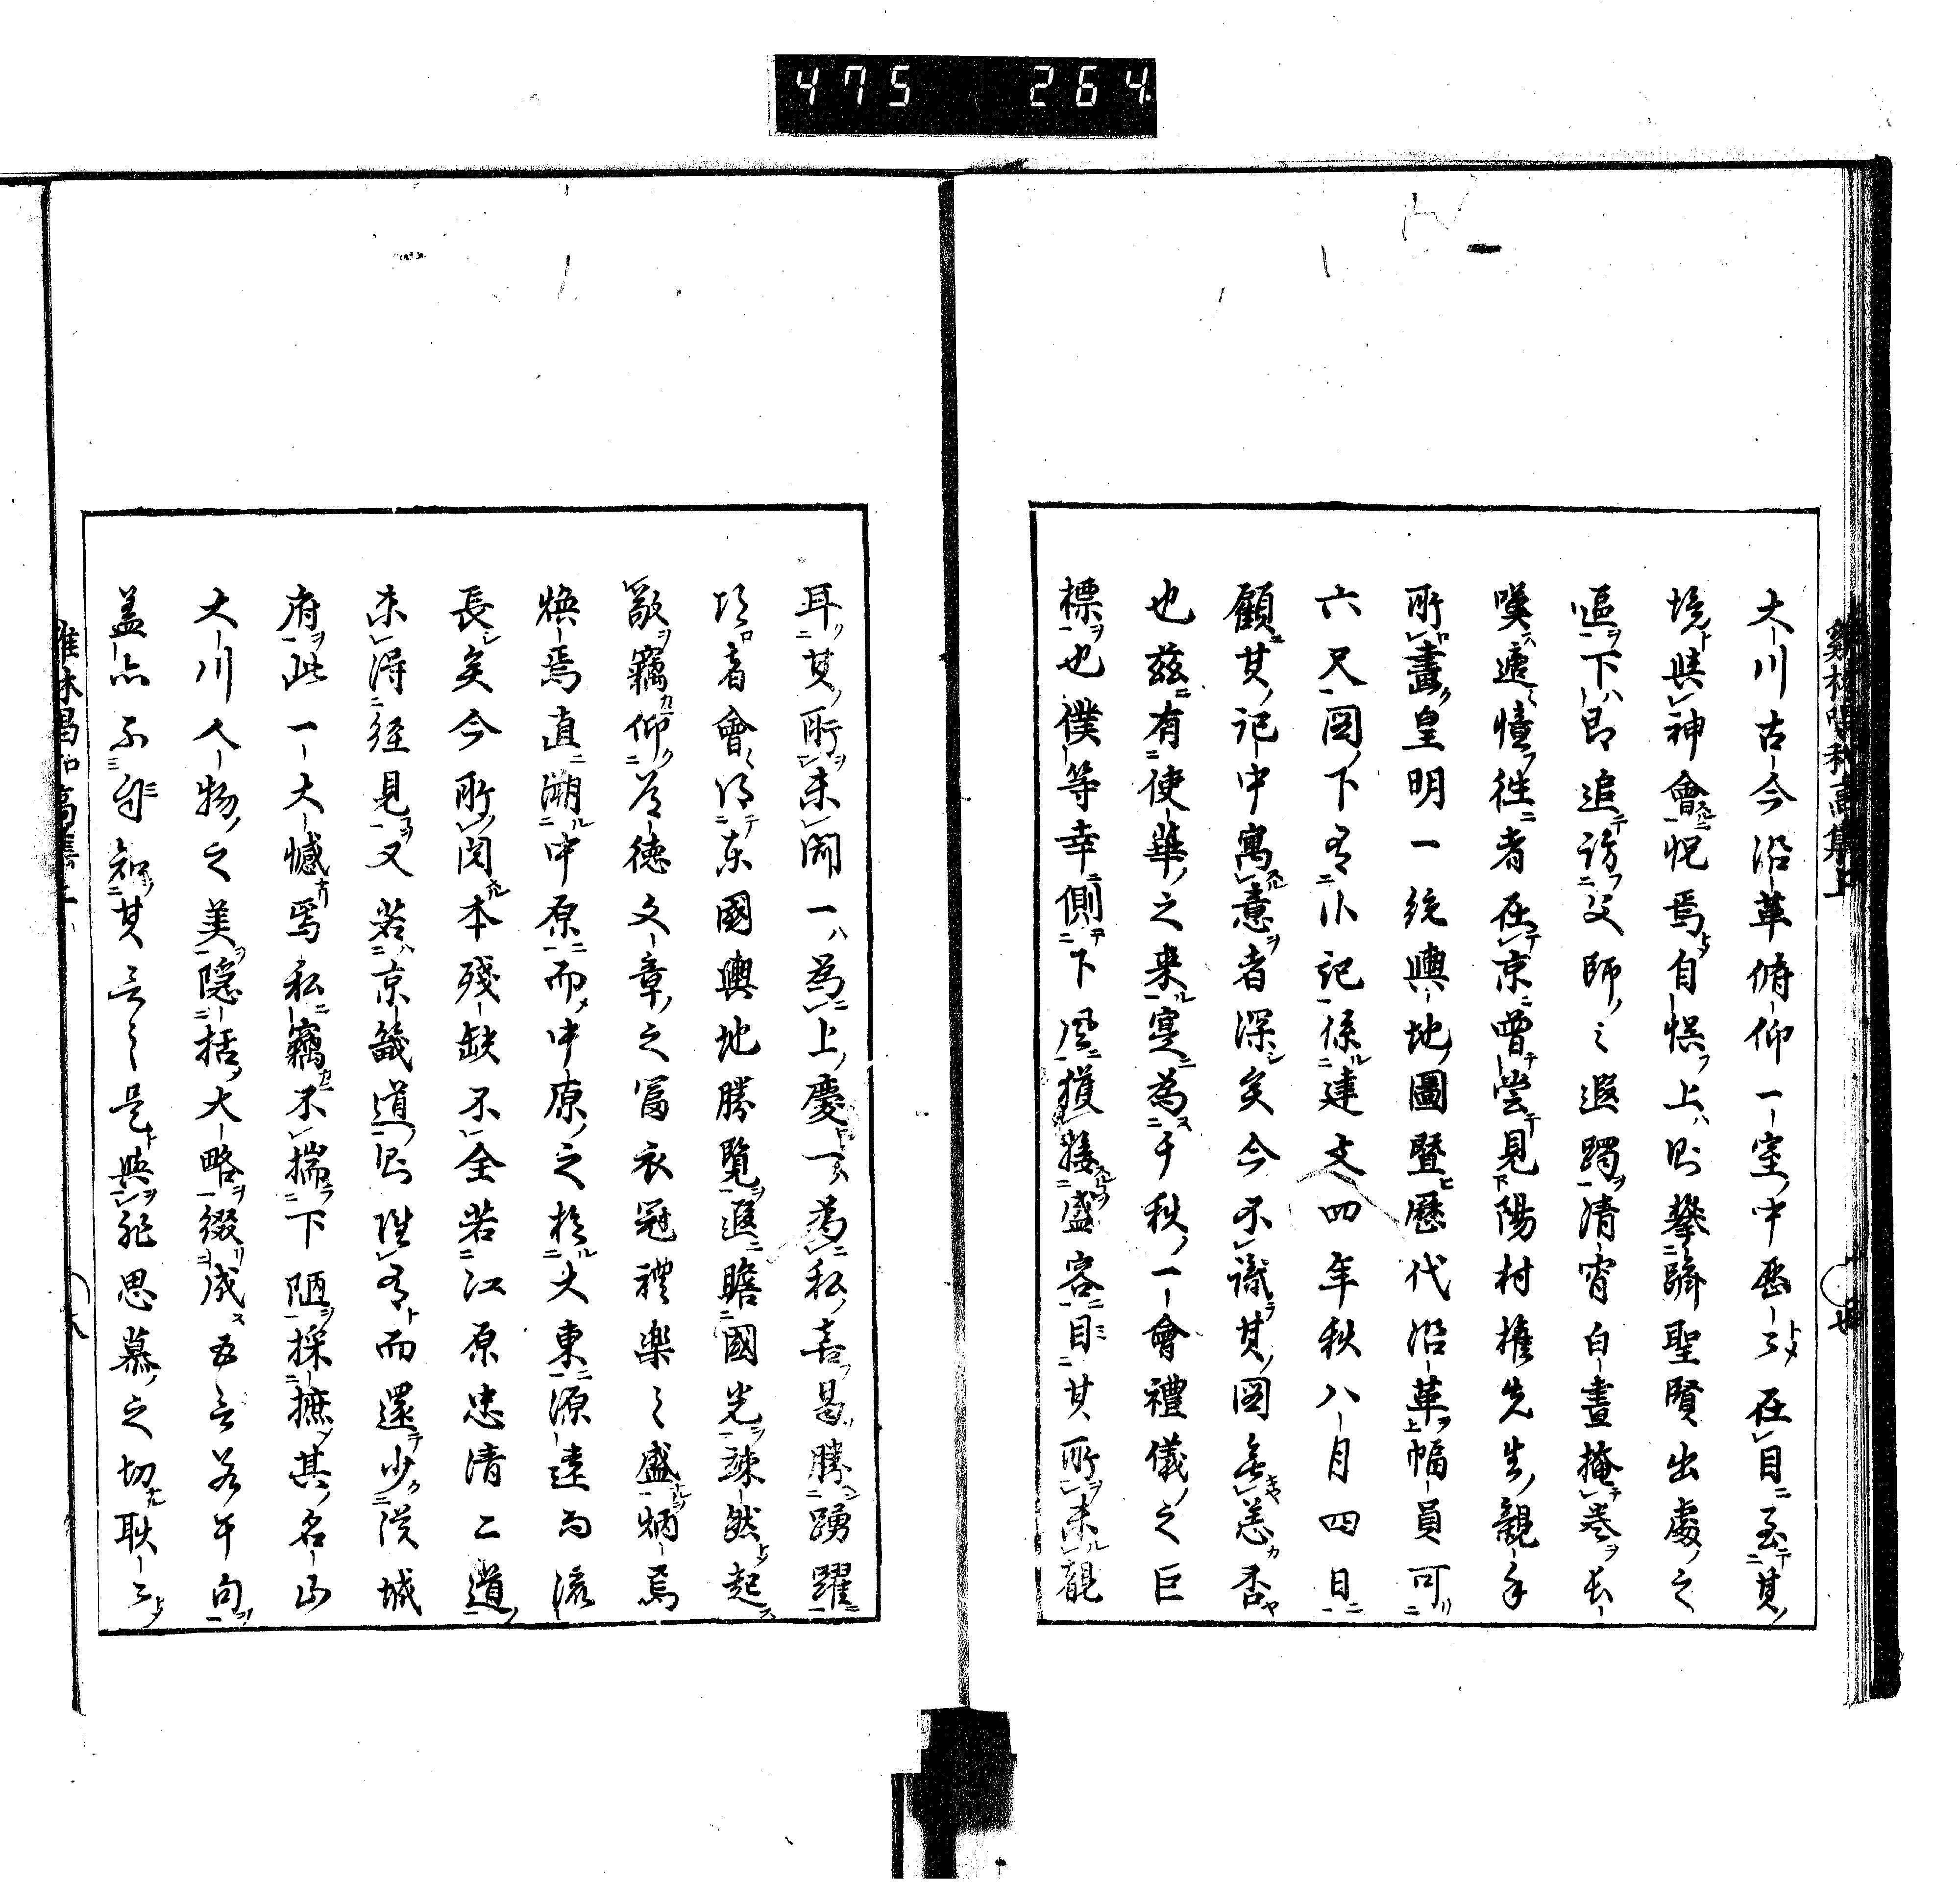 475 264
大川古今沿革俯仰一室中歷々在目至其
境與神會怳焉自惧上則攀躋聖賢出處之
嘔下即追訪父師之遐躅清宵白晝掩卷長
嘆遞憶徃者在京曾嘗見陽村權先生親手
所畫皇明一統輿地圖曁歷代沿革幅員可
六尺圖下有小記係建文四年秋八月四日
顧其記中寓意者深矣今不識其圖無恙否
也茲有使華之来寔為千秋一會禮儀之巨
標也僕等幸側下風獲接盛容目其所未覩
耳其所未聞一為上慶一為私喜曷勝踴躍
頃者會得東國輿地勝覽遥瞻國光竦然起
敬竊仰道德文章之富衣冠禮樂之盛炳焉
煥焉直溯中原而中原之於大東源遠而流
長矣今所閱本殘缺不全若江原忠清二道
未得經見又若京畿道則雖有而還少漢城
府此一大憾焉私竊不揣下陋採摭其名山
大川人物之美隱括大略綴成五言若干句
盖亦不自知其言之是與非思慕之切耿々
雞林唱和高集上